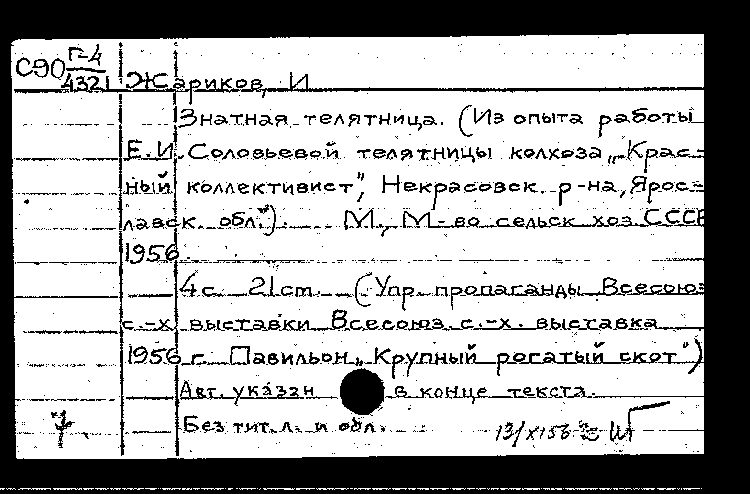 С90 Г-4
4321 Жариков, И
Знатная телятница. (Из опыта работы
Е.И. Соловьевой телятницы колхоза „Крас-
ный коллективист", Некрасовск. р-на, Ярос-
лавск. обл.). М., М-во сельск хоз СССР
1956.
4 с. 21 cm. (Упр. пропаганды Всесоюз
с.-х. выставки Всесоюз. с.-х. выставка
1956 г. Павильон „Крупный рогатый скот")
Авт. указан в конце текста.
Без тит. л. и обл.
13/X156